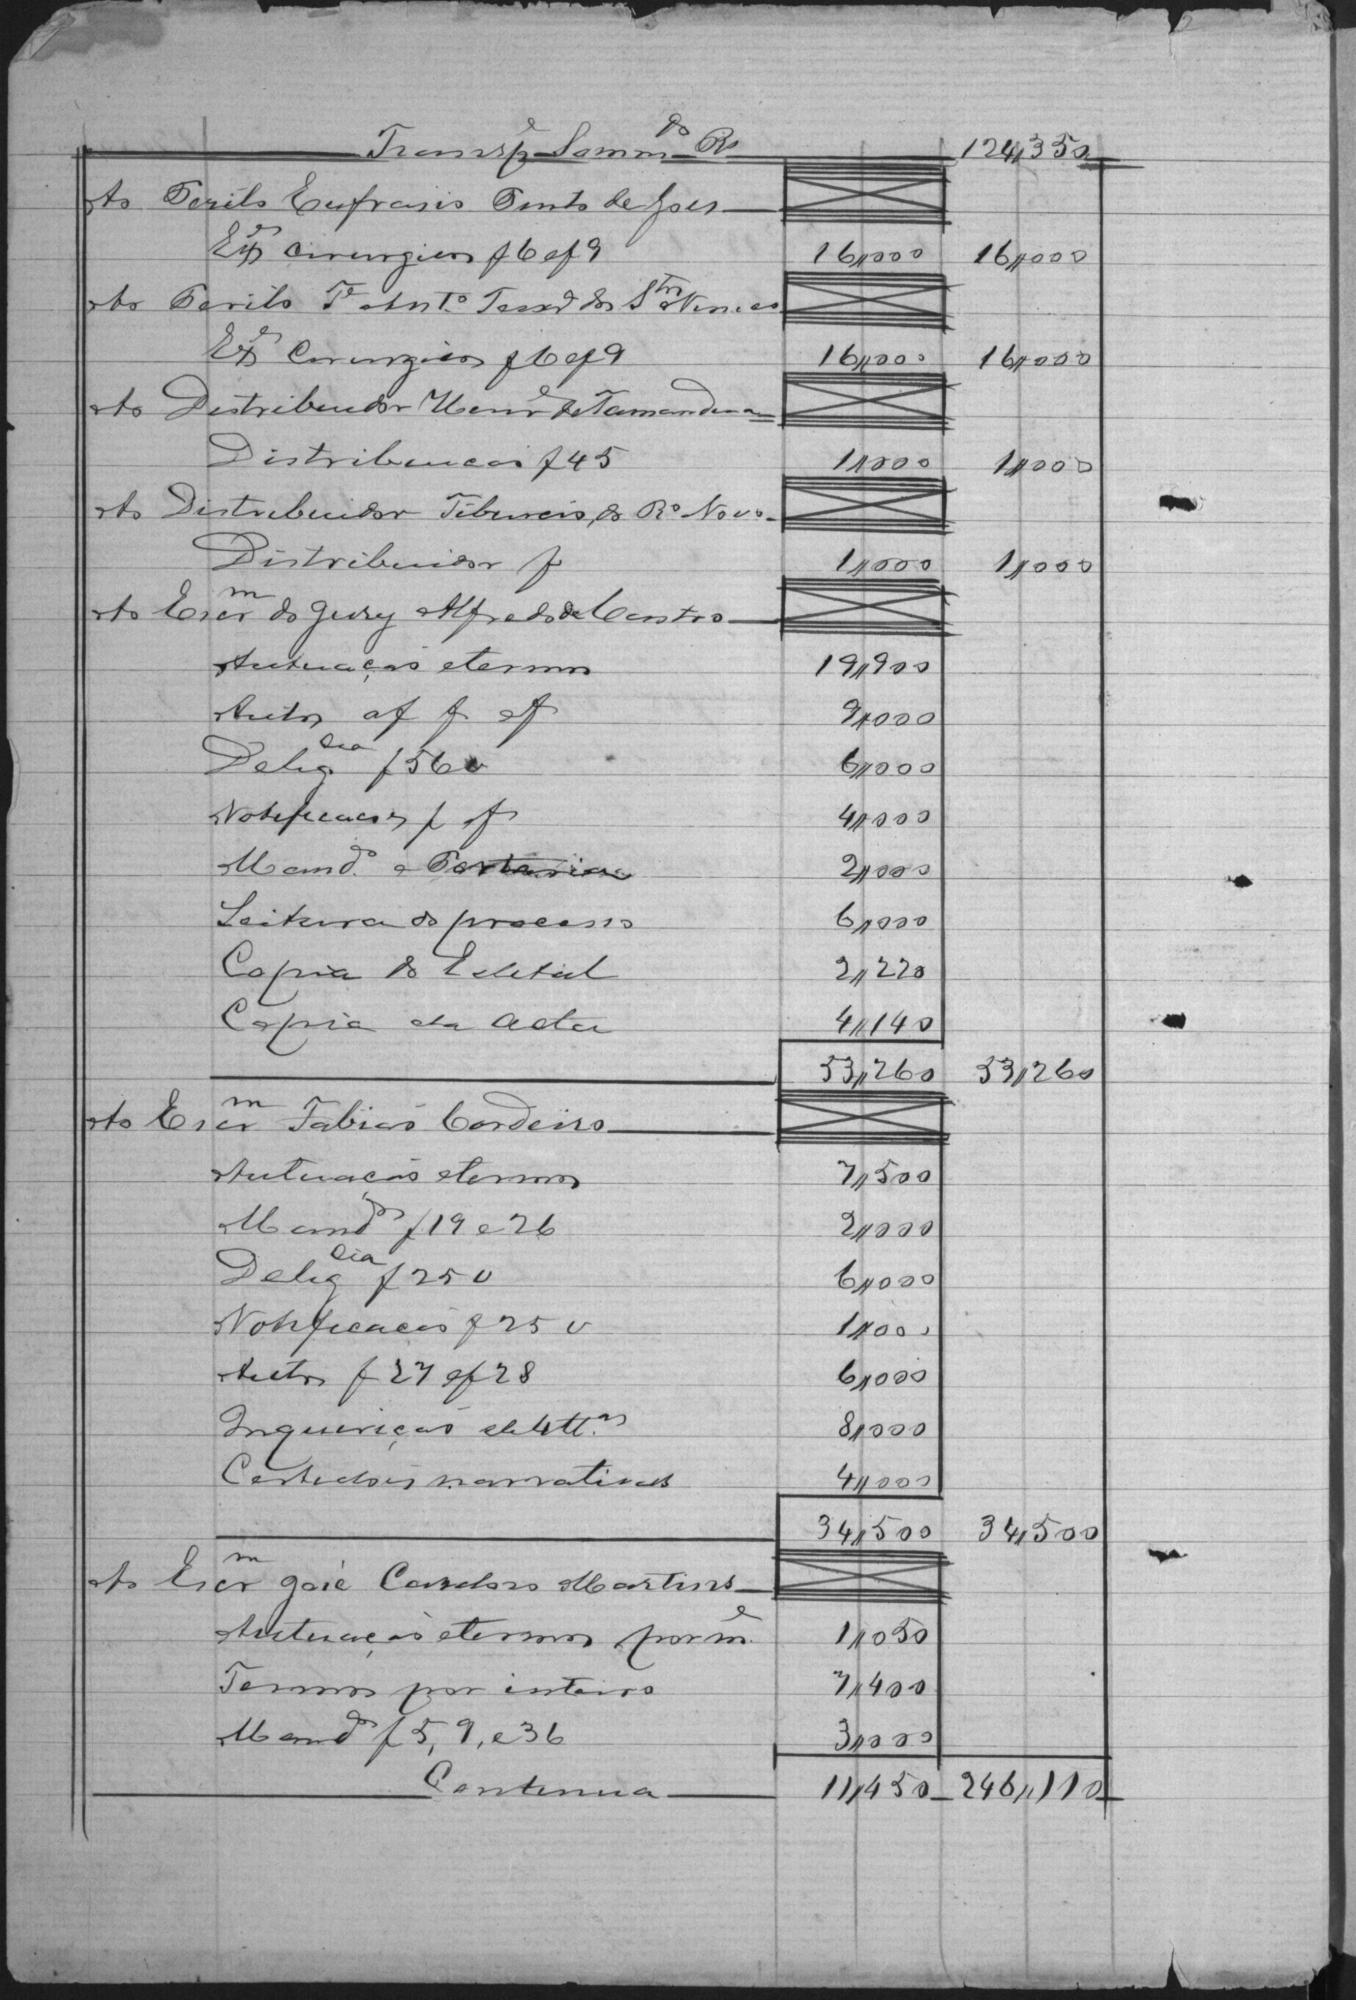 Transpe Sommdo Rs 124,350
Ao Perito Eufrasio Pinto de Goes
Exes cirurgicos f 6 e f 9 16,000 16,000
Ao Perito Te Anto
Exes Cirurgicos f 6 e f 9 16,000 16,000
Ao Distribuidor Henre de Tamandua
Distribuicão f 45 1,000 1,000
Ao Distribuidor Tiburcio, do Ro Novo
Distribuidor f 1,000 1,000
Ao Escrm do Jury Alfredo de Castro
Autuação e termos 19,900
Autos a f f e f 9,000
Deligcia f 56 v 6,000
Notificacoes f f 4,000
Mando e Portaria 2,000
Leitura do processo 6,000
Copia do Edetal 2,220
Copia da Acta 4,140
53,260 53,260
Ao Escrm Fabião Cordeiro
Autuacão e termos 7,500
Mandos f 19 e 26 2,000
Deligcia f 25 v 6,000
Notificacão f 25 v 1,000
Autos f 27 e f 28 6,000
Inquirição de 4 ttas 8,000
Certidões narrativas 4,000
34,500 34,500
Ao Escrm José Cardoso Martins
Autuação e termos por me 1,050
Termos por inteiro 7,400
Mandos f 5, 9, e 36 3,000
Continua 11,450 246,110